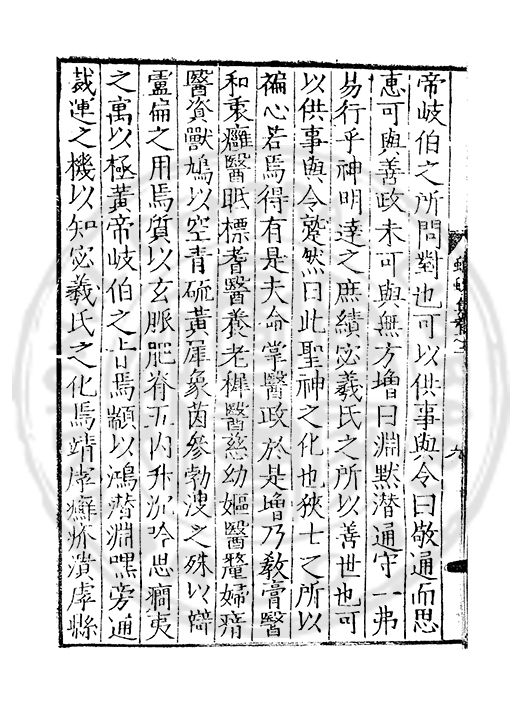 帝岐伯之所問對也可以供事與令曰敬通而思
恵可與善政未可與無方增曰淵黙潜通守一弗
易行乎神明達之庶績宓羲氏之所以善世也可
以供事與令蹵然曰此聖神之化也狹士之所以
褊心若焉得有是夫命掌醫政於是增乃教膏醫
和秉癰醫眠標耆醫養老穉醫慈幼嫗醫釐婦
醫資獸鳩以空青硫黄犀象茵參勃溲之殊以辯
盧扁之用焉質以玄脈肥脊五内升沉吟思痾夷
之寓以極黄帝岐伯之旨焉顓以鴻潜淵嘿旁通
裁運之機以知宓羲氏之化焉靖宰癬疥潰虖縣